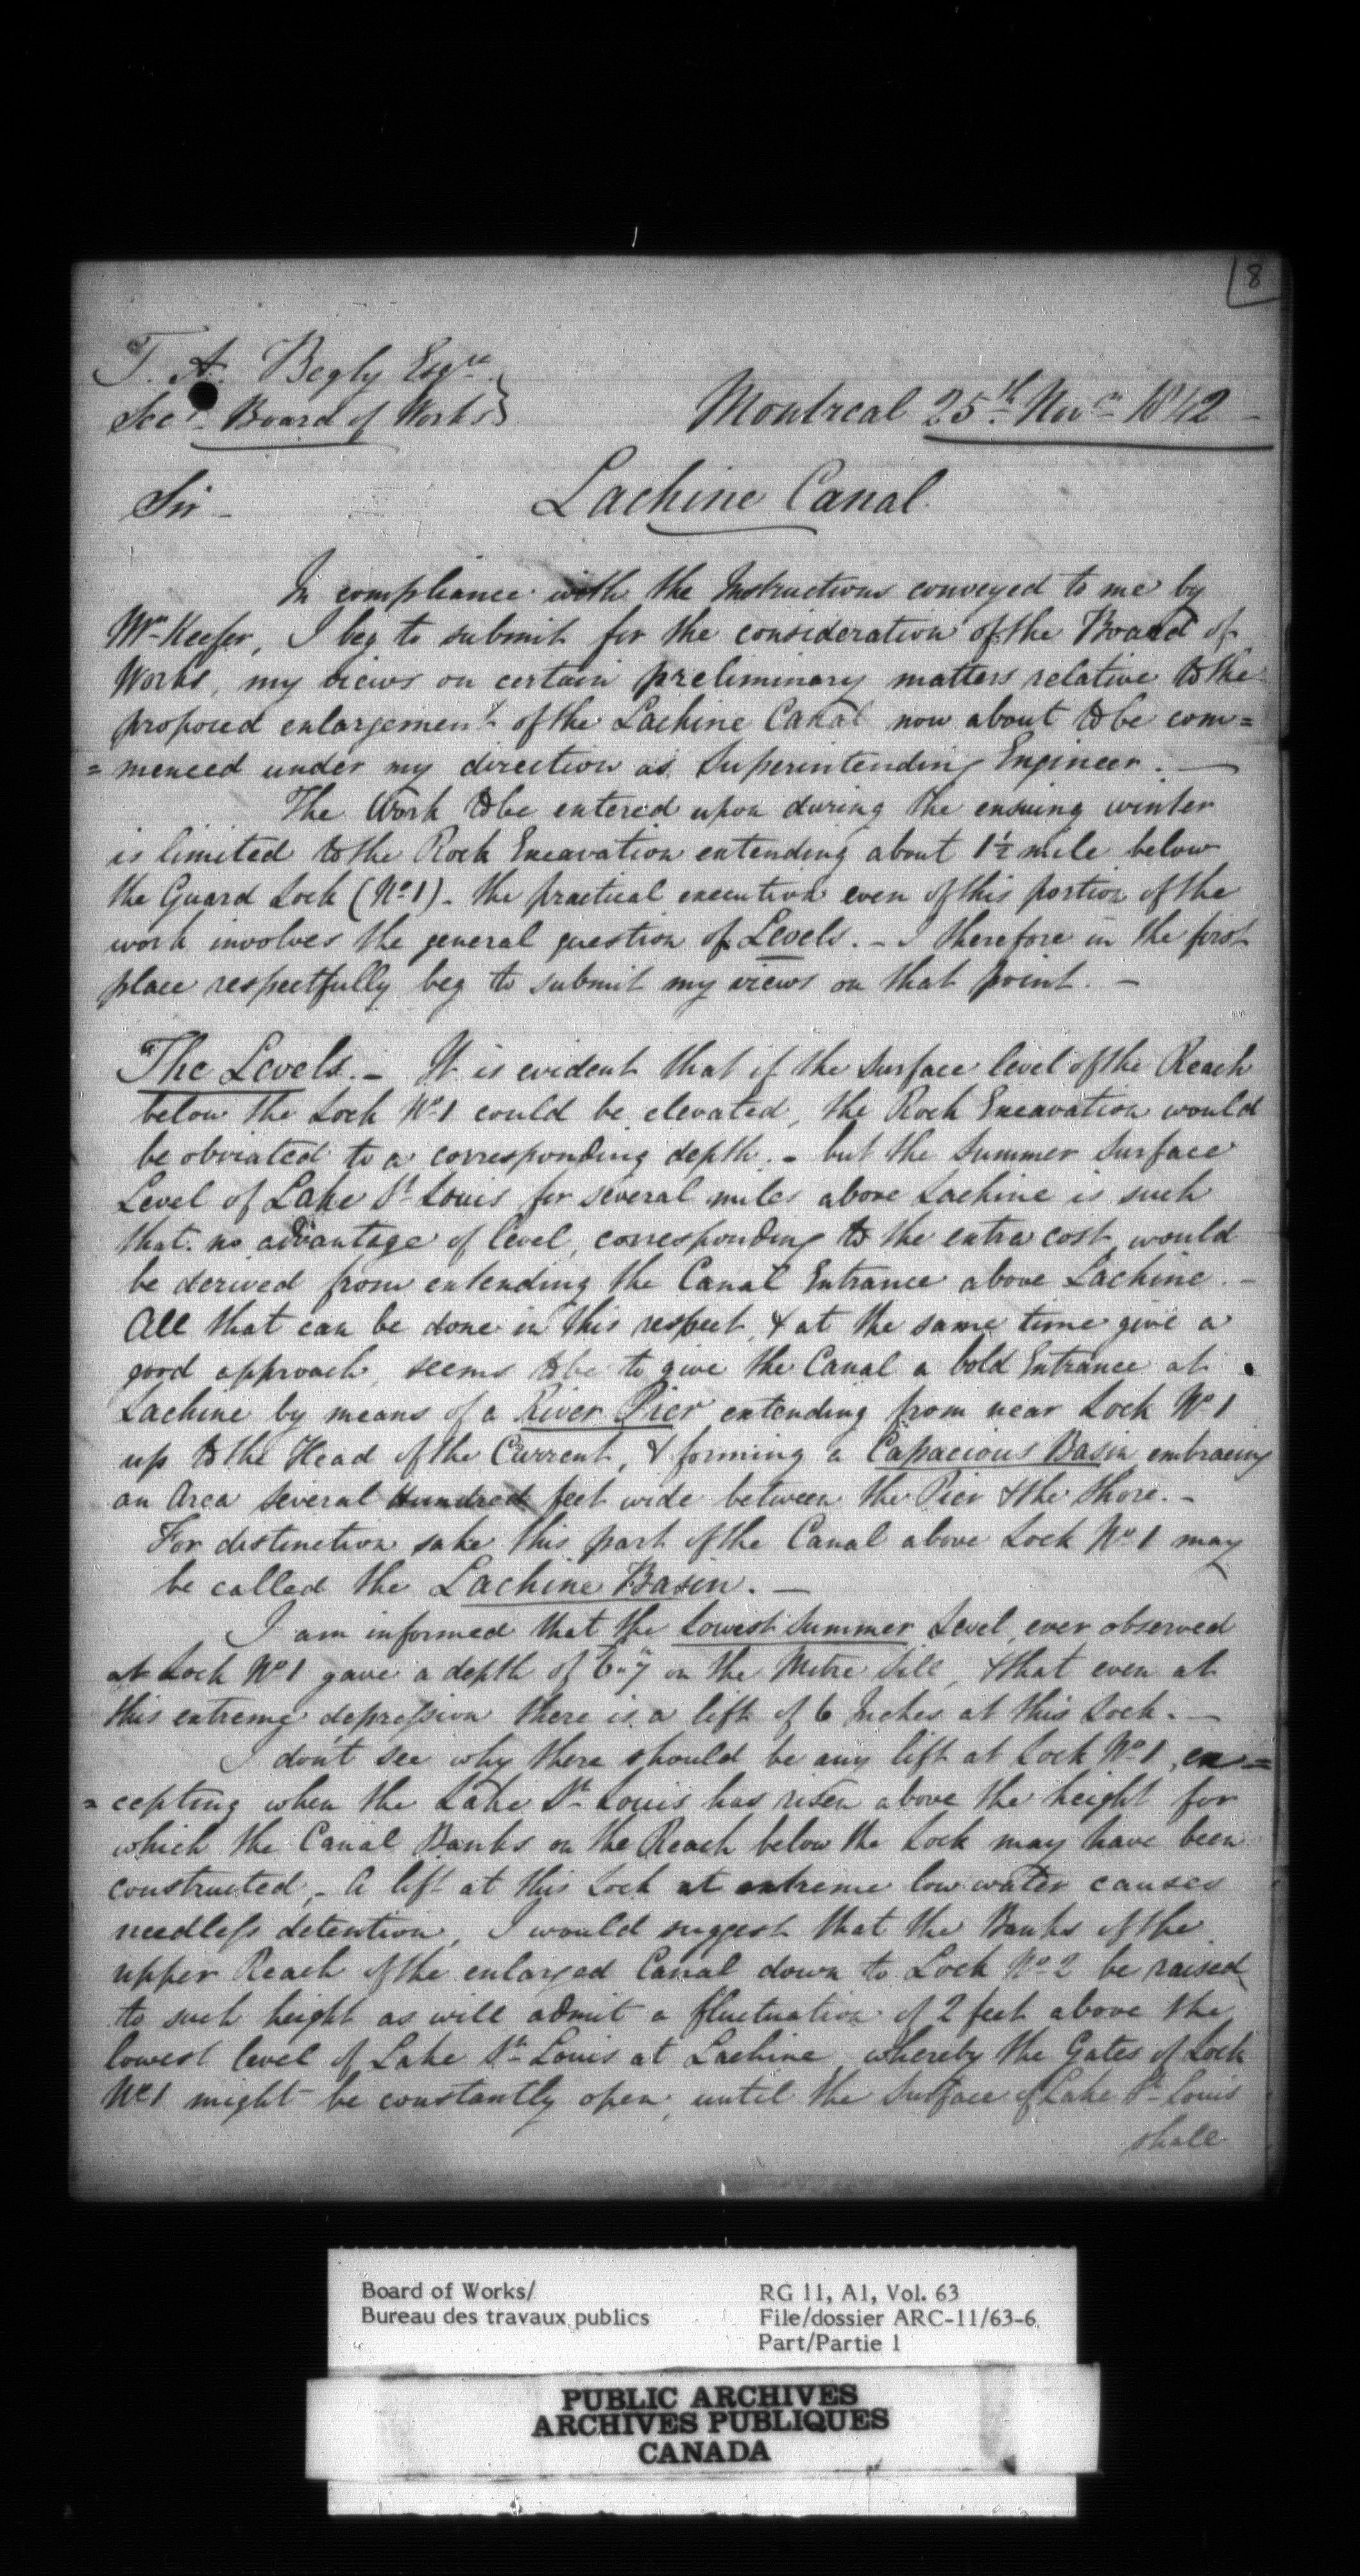 8
T. A. Begly Esqre
Secy Board of Works
Montreal 25th Novr 1842
Sir -
Lachine Canal
In compliance with the Instructions conveyed to me by
Mr Keefer, I beg to submit for the consideration of the Board of
Works, my views on certain preliminary matters relative to the
proposed enlargement of the Lachine Canal now about to be com=
=menced under my direction as Superintending Engineer. -
The Work to be entered upon during the ensuing winter
is limited to the Rock Excavation extending about 1½ mile below
the Guard Lock (No 1) - the practical execution even of this portion of the
work involves the general question of Levels. - I therefore in the first
place respectfully beg to submit my views on that point. -
"The Levels. - It is evident that if the Surface level of the Reach
below the Lock No 1 could be elevated, the Rock Excavation would
be obviated to a corresponding depth. - but the Summer Surface
Level of Lake St Louis for several miles above Lachine is such
that no advantage of level, corresponding to the extra cost would
be derived from extending the Canal Entrance above Lachine. -
All that can be done in this respect, & at the same time give a
good approach, seems to be to give the Canal a bold Entrance at
Lachine by means of a River Pier extending from near Lock No 1
up to the Head of the Current, & forming a Capacious Basin embracing
an Area several hundred feet wide between the Pier & the Shore. -
For distinction sake this part of the Canal above Lock No 1 may
be called the Lachine Basin. -
I am informed that the Lowest Summer Level, ever observed
at Lock No 1 gave a depth of 6'-7" on the Mitre Sill, & that even at
this extreme depression there is a lift of 6 Inches at this Lock. -
I don't see why there should be any lift at Lock No 1, ex=
=cepting when the Lake St Louis has risen above the height for
which the Canal Banks on the Reach below the Lock may have been
constructed, - A lift at this Lock at extreme low water causes
needless detention, I would suggest that the Banks of the
upper Reach of the enlarged Canal down to Lock No 2 be raised
to such height as will admit a fluctuation of 2 feet above the
lowest level of Lake St Louis at Lachine whereby the Gates of Lock
No 1 might be constantly open, until the Surface of Lake St Louis
shall
Board of Works/
Bureau des travaux publics
RG 11, A1, Vol. 63
File/dossier ARC-11/63-6
Part/Partie 1
PUBLIC ARCHIVES
ARCHIVES PUBLIQUES
CANADA